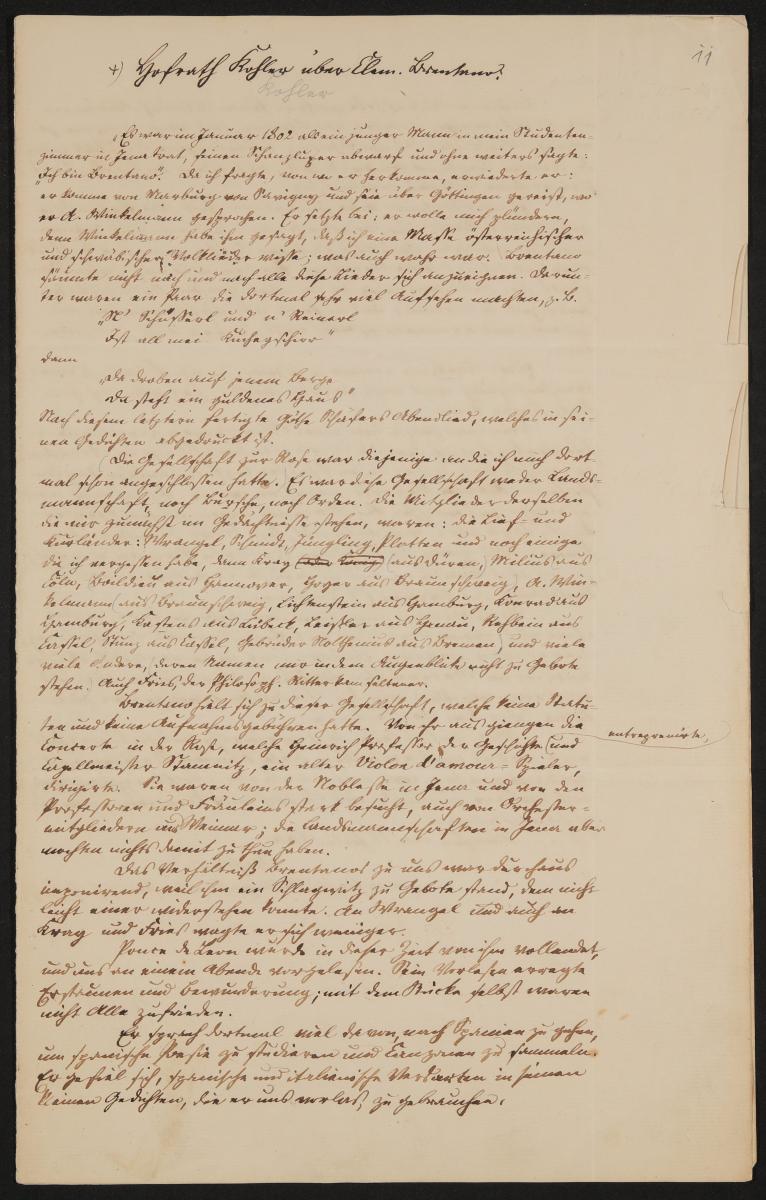 11
+) Hofrath Kohler über Clem. Brentano.
Kohler
„Es war im Januar 1802 als ein junger Mann in mein Studenten-
zimmer in Jena trat, seinen Schanzluper abwarf und ohne weiters sagte:
„Ich bin Brentano“. Da ich fragte, von wo er herkomme, erwiederte er:
er komme von Marburg von Savigny und sei über Göttingen gereist, wo
er A. Winkelmann gesprochen. Er setzte bei: er wolle mich plündern,
denn Winkelmann habe ihm gesagt, daß ich eine Masse österreichischer
und schwäbischer Volkslieder wisse; was auch wahr war. Brentano
säumte nicht nach und nach alle diese Lieder sich anzueignen. Darun-
ter waren ein Paar die dortmal sehr viel Aufsehen machten, z. B.
„N' Schüsserl und n' Reinerl
Ist all mei Kuchegschirr“
dann
„Da droben auf jenem Berge
Da steht ein guldenes Haus“
Nach diesem letztern fertigte Göthe Schäfers Abendlied, welches in sei-
nen Gedichten abgedruckt ist.
Die Gesellschaft zur Rose war diejenige an die ich mich dort-
mal schon angeschlossen hatte. Es war diese Gesellschaft weder Lands-
mannschaft, noch Bursche, noch Orden. Die Mitglieder derselben
die mir zunächst im Gedächtnisse stehen, waren: die Lief- und
Kurländer: Wrangel, Schmidt, Jüngling, Platten und noch einige
die ich vergessen habe, dann Kray (aus Düren,) Milius aus
Cöln, (Boildieu aus Hannover, Hoyer aus Braunschweig), A. Win-
kelmann (aus Braunschweig, Lichtenstein aus Hamburg, Konrad aus
Hamburg, Carstens aus Lübeck, Leisler aus Hanau, Rehbein aus
Cassel, Stunz aus Cassel, Gebrüder Nolthenius aus Bremen, und viele
viele Andere, deren Namen mir in dem Augenblike nicht zu Gebote
stehen. Auch Fries, der Philosoph. Ritter kam seltener.
Brentano hielt sich zu dieser Gesellschaft, welche keine Statu-
ten und keine Aufnahmsgebühren hatte. Von ihr aus giengen die
Concerte in der Rose, welche Heinrich Professor der Geschichte (und
entreprenirte,
Capellmeister Stamnitz, ein alter Violon d'amour-Spieler,
dirigirte. Sie waren von der Noblesse in Jena und von den
Professoren und Fräuleins stark besucht, auch von Orchester-
mitgliedern aus Weimar; die Landsmannschaften in Jena aber
mochten nichts damit zu thun haben.
Das Verhältniß Brentanos zu uns war durchaus
imponirend, weil ihm ein Schlagwitz zu Gebote stand, dem nicht
leicht einer widerstehen konnte. An Wrangel und auch an
Kray und Fries wagte er sich weniger.
Ponce de Leon wurde in dieser Zeit von ihm vollendet,
und uns an einem Abende vorgelesen. Sein Vorlesen erregte
Erstaunen und Bewunderung; mit dem Stücke selbst waren
nicht Alle zufrieden.
Er sprach dortmal viel davon, nach Spanien zu gehen,
um spanische Poesie zu studieren und Canzonen zu sammeln.
Er gefiel sich, spanische und italiänische Versarten in seinen
kleinen Gedichten, die er uns vorlas, zu gebrauchen.